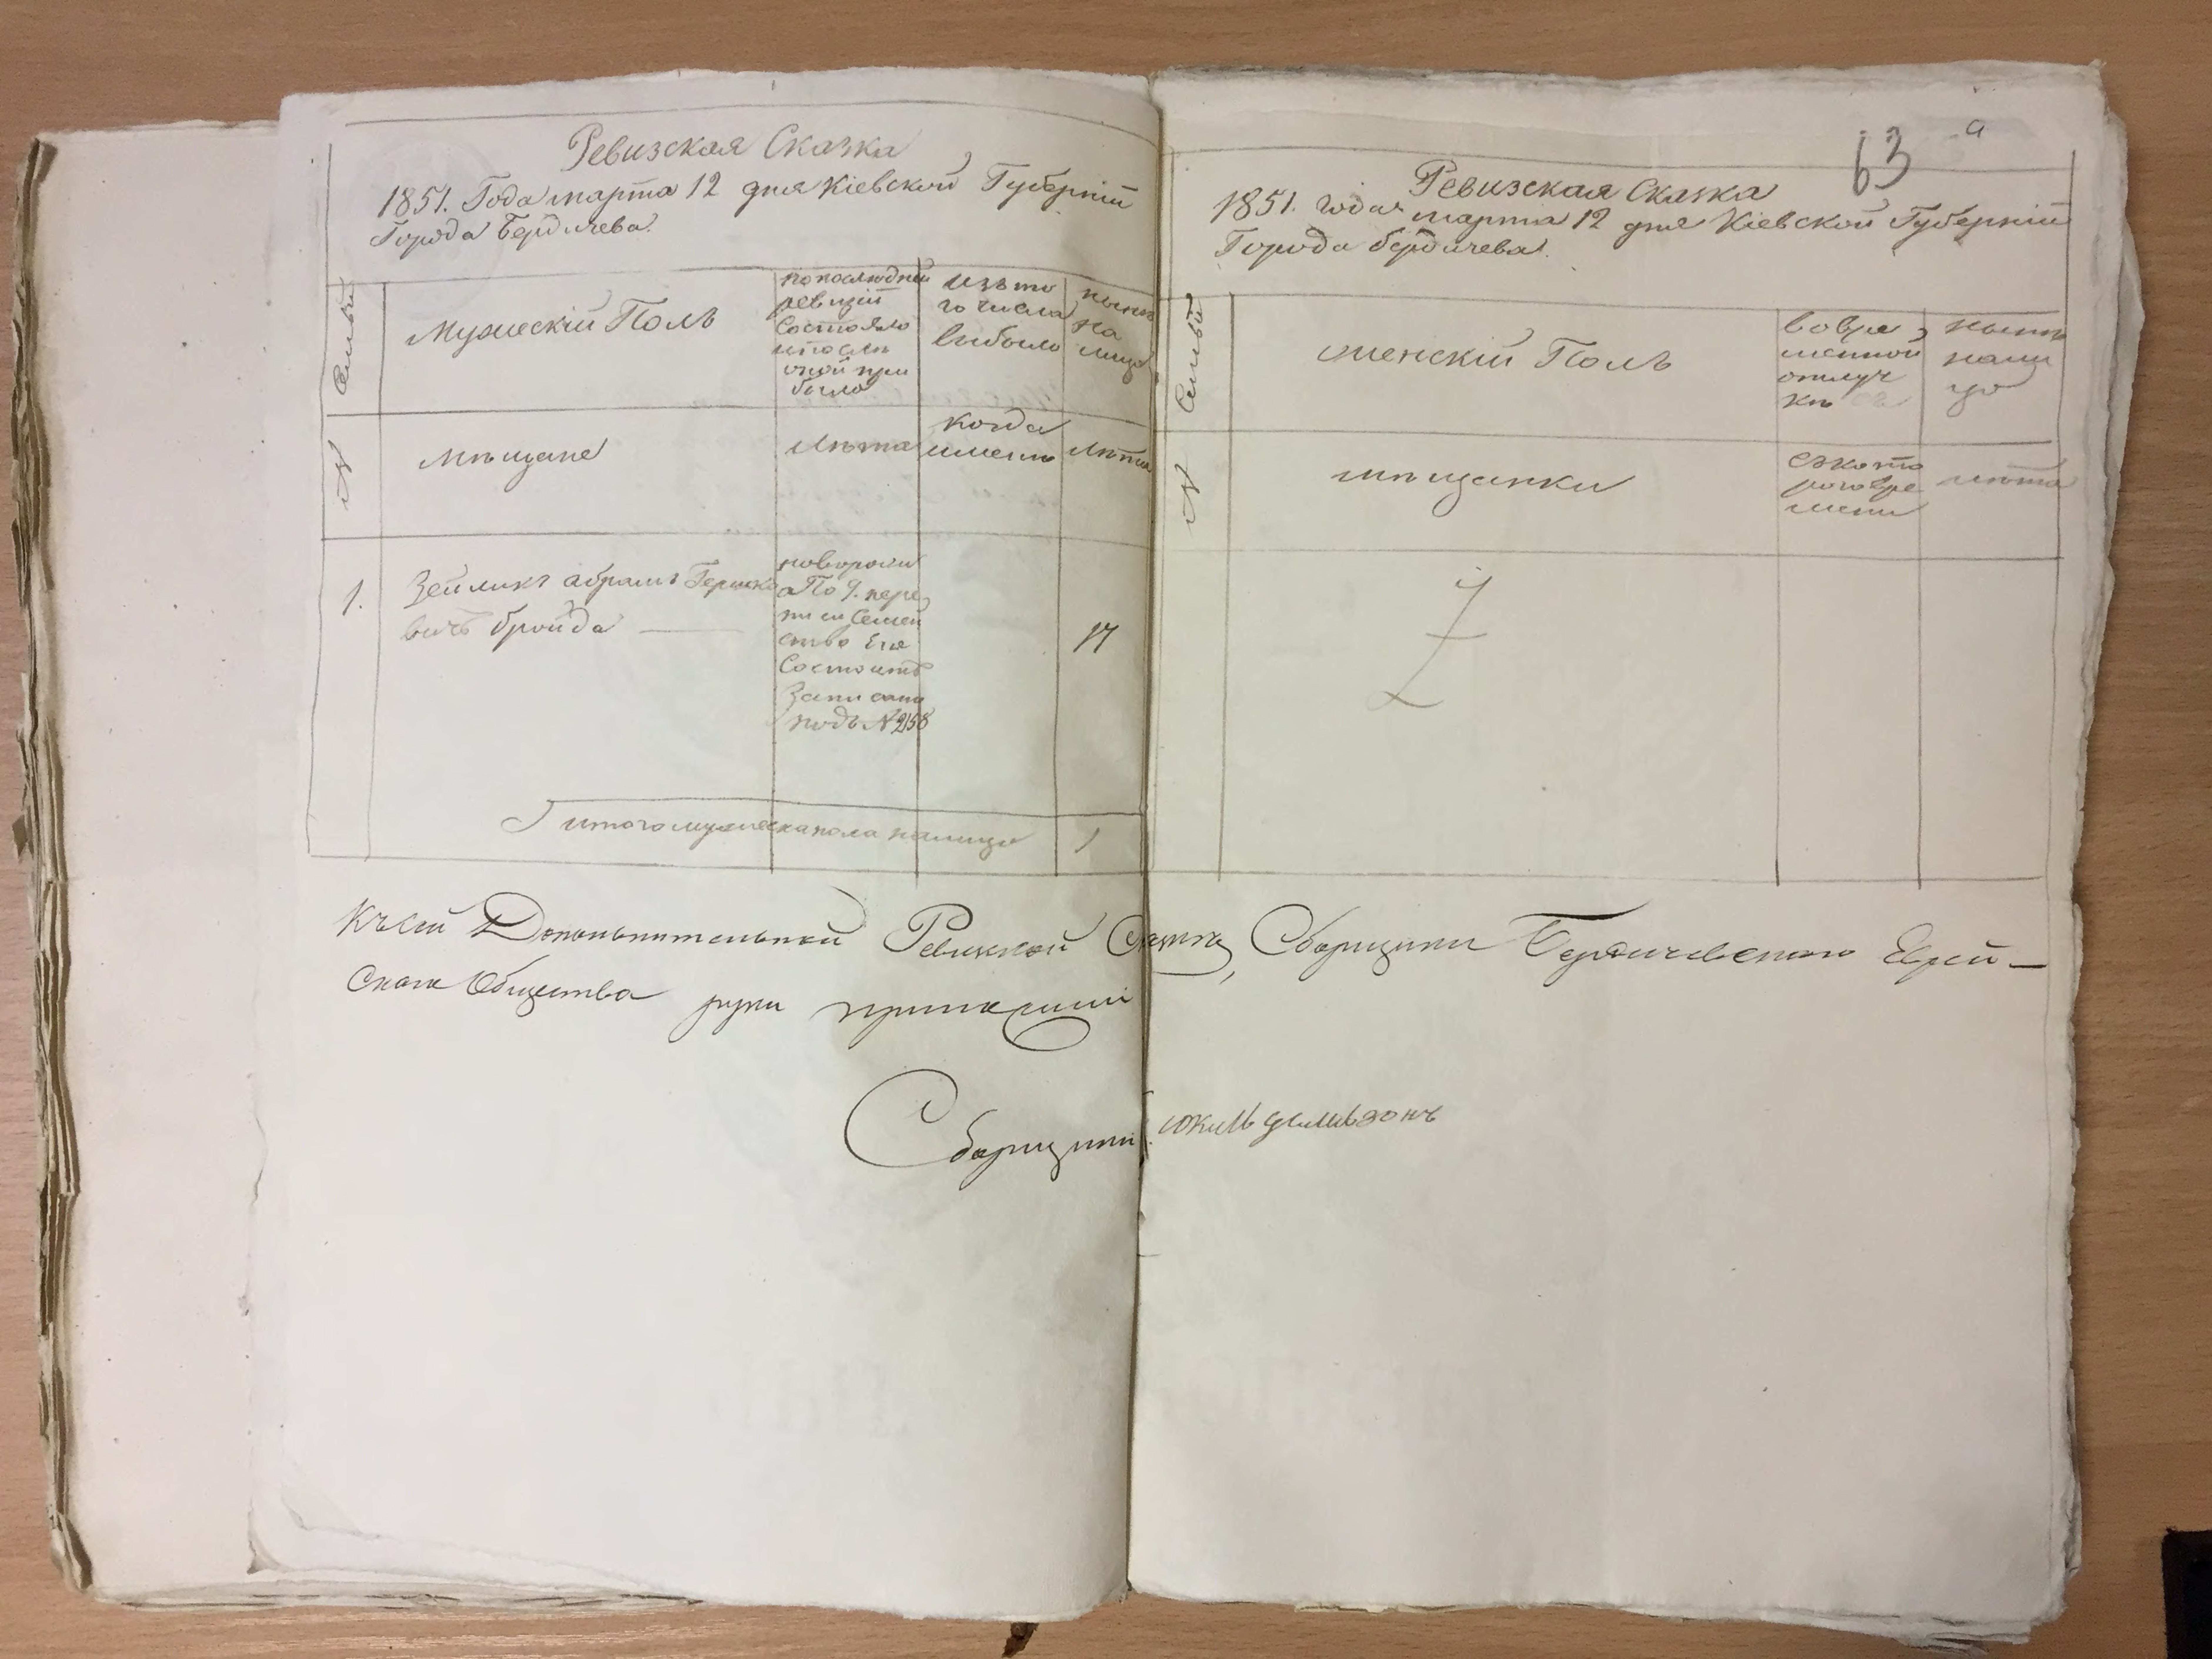 Ревизская Сказка
1851. Года марта 12 дня Кіевской Губерніи
Города Бердичева.
Семьи
Мужескій Полъ
по последней
ревизіи
Состояло
и после
оной при
было
изъ то
го числа
выбыло
ныне
на
лицо
№
мещане
лета
когда
именно
лета
1.
Зейликъ абрамъ Гершко
вичъ бройда
по 9. пере
писи Семей
ство Его
Состоитъ
Записано
подъ №258
17
итого мужеска пола налицо
1
63
а
Ревизская Сказка
1851. года марта 12 дня Кіевской Губерніи
Города бердичева.
Семьи
женскій Полъ
во вре
менной
отлуч
ке
ныне
нали
цо
№
мещанки
съ кото
рого вре
мени
лета
Къ сей Дополнительной Ревизкой Сказке, Сборщики Бердичевского Еврей-
Скаго Общества руки приложили
Сборщики